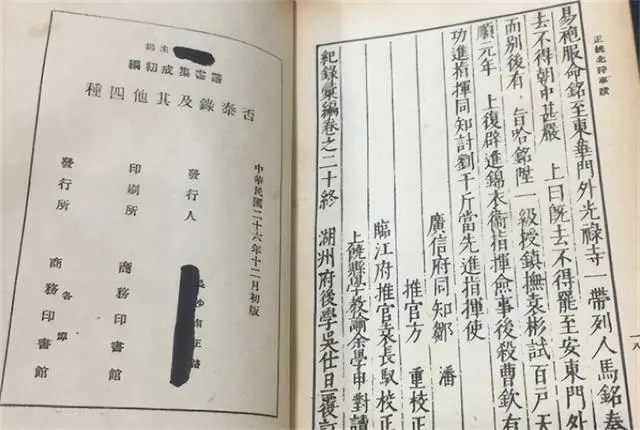 正統北狩事蹟
易袍服命銘至東華門外光祿寺一帶列人馬銘奏
去不得朝中甚嚴　上曰既去不得罷至安東門外
而別後有　旨哈銘陞一級授鎮撫袁彬試百戶天
順元年　上復辟進錦衣衛指揮僉事後殺曹欽有
功進指揮同知討劉千斤當先進指揮使
廣信府同知鄒　潘
推官方　重校正
臨江府推官袁長馭校正
上饒縣學教諭余學申對讀
紀錄彙編卷之二十終　湖州府後學吳仕旦覆訂
主編
叢書集成初編
否泰錄及其他四種
中華民國二十六年十二月初版
發行人　長沙南正路
印刷所　商務印書館
發行所　各埠　商務印書館